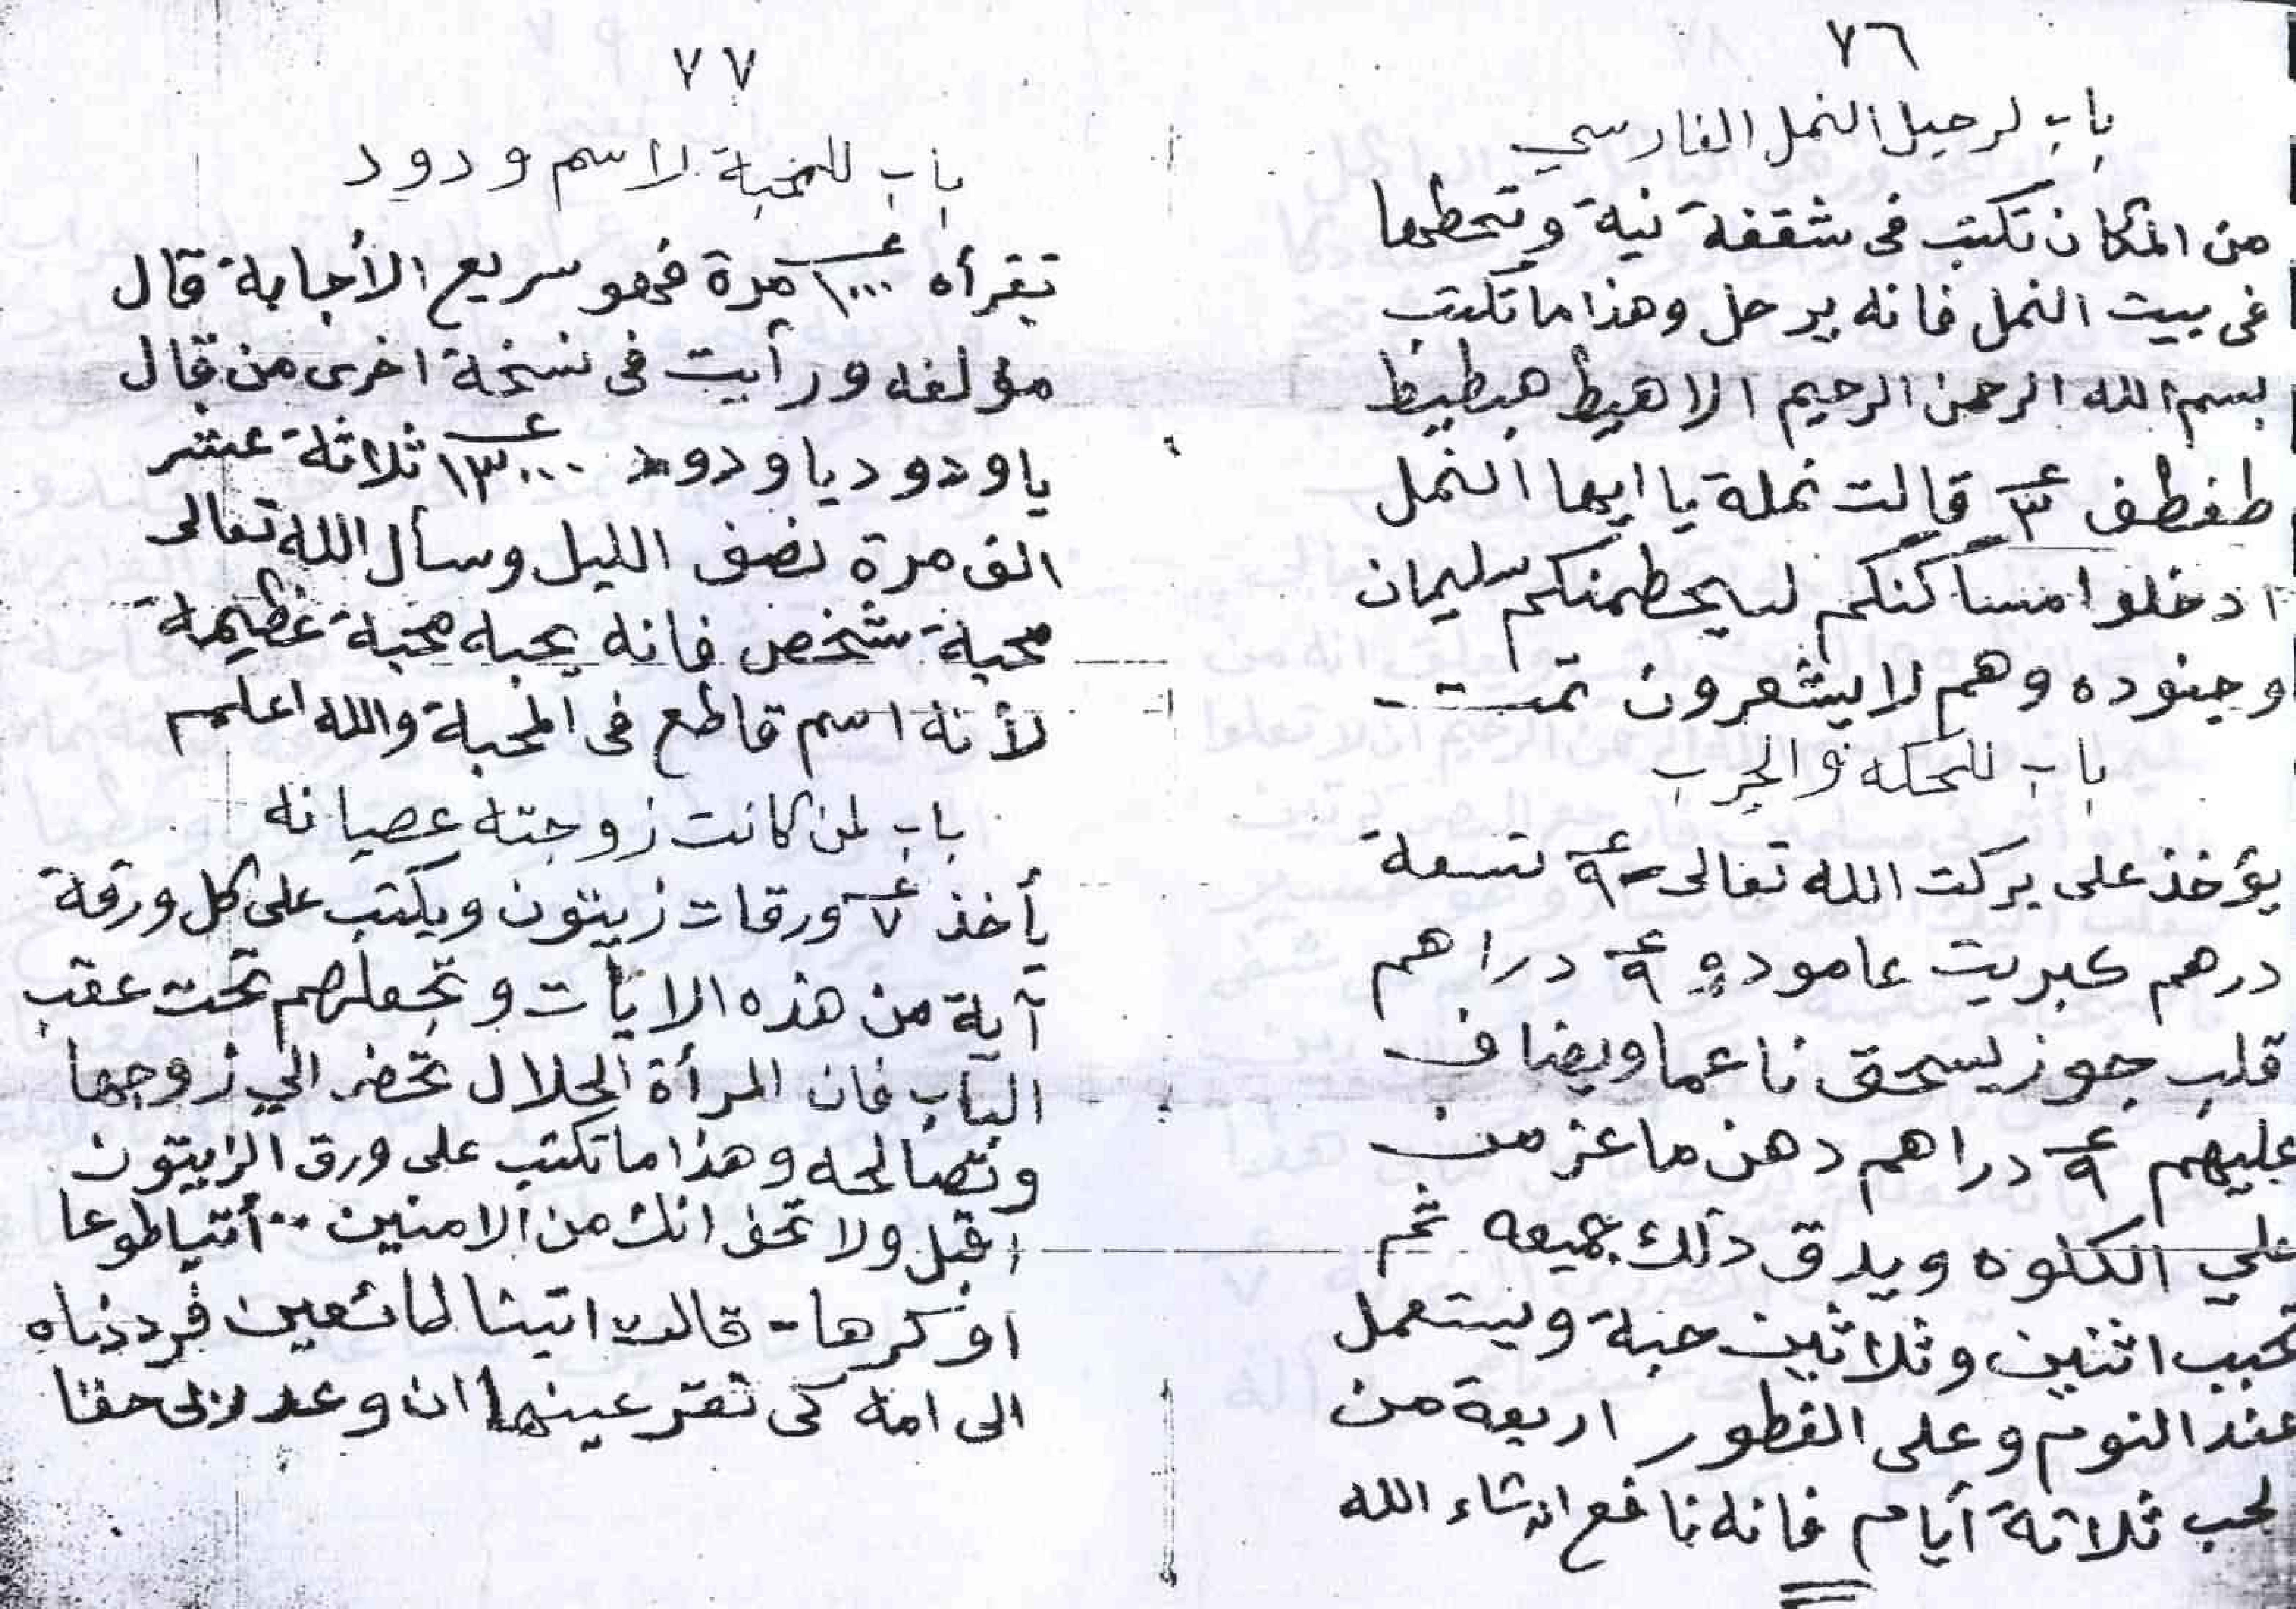 ٧٦
باب لرحيل النمل الفارسي
من المكان تكتب فى شقفة نية وتحطها
فى بيت النمل فانه يرحل وهذا ما تكتب
بسم الله الرحمن الرحيم الاهيط هبطيط
طفطف ٣ قالت نملة يا ايها النمل
ادخلوا مساكنكم ليحطمنكم سليمان
وجنوده وهم لا يشعرون تمت
باب للحكه والجرب
يؤخذ على بركت الله تعالى ٩ تسعة
درهم كبريت عامود و ٩ دراهم
قلب جوز يسحق ناعما ويضاف
عليهم ٩ دراهم دهن ماعز من
على الكلوه ويدق ذلك جميعه ثم
تحبب اثنين وثلاثين حبة ويستعمل
عند النوم وعلى الفطور اربعة من
لحب ثلاثة أيام فانه نافع انشاء الله
٧٧
باب للمحبة لاسم ودود
تقرأه ١٠٠٠ مرة فهو سريع الأجابة قال
مؤلفه ورأيت فى نسخة اخرى من قال
يا ودود يا ودود ١٣٠٠٠ ثلاثة عشر
الف مرة نصف الليل وسأل الله تعالى
محبة شخص فانه يحبه محبة عظيمة
لأنه اسم قاطع فى المحبة والله اعلم
باب لمن كانت زوجته عصيانه
يأخذ ٧ ورقات زيتون ويكتب على كل ورقة
آية من هذه الايات وتجعلهم تحت عقب
الباب فان المرأة الحلال تحضر الي زوجها
وتصالحه وهذا ما تكتب على ورق الزيتون
اقبل ولا تخف انك من الامنين أتيا طوعا
او كرها - قالت اتينا طائعين فرددناه
الى امه كى تقر عينها ان وعد ربى حقا